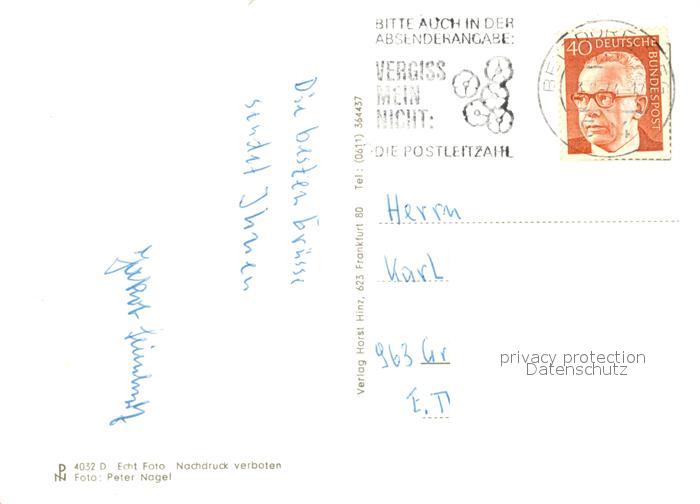 BITTE AUCH IN DER
ABSENDERANGABE:
VERGISS
MEIN
NICHT:
DIE POSTLEITZAHL
40 DEUTSCHE
BUNDESPOST
Die besten Grüsse
sendet Ihnen
Verlag Horst Hinz, 623 Frankfurt 80 Tel: (0611) 364437
Herrn
Karl
963 Gr
privacy protection
Datenschutz
4032 D Echt Foto Nachdruck verboten
Foto: Peter Nagel